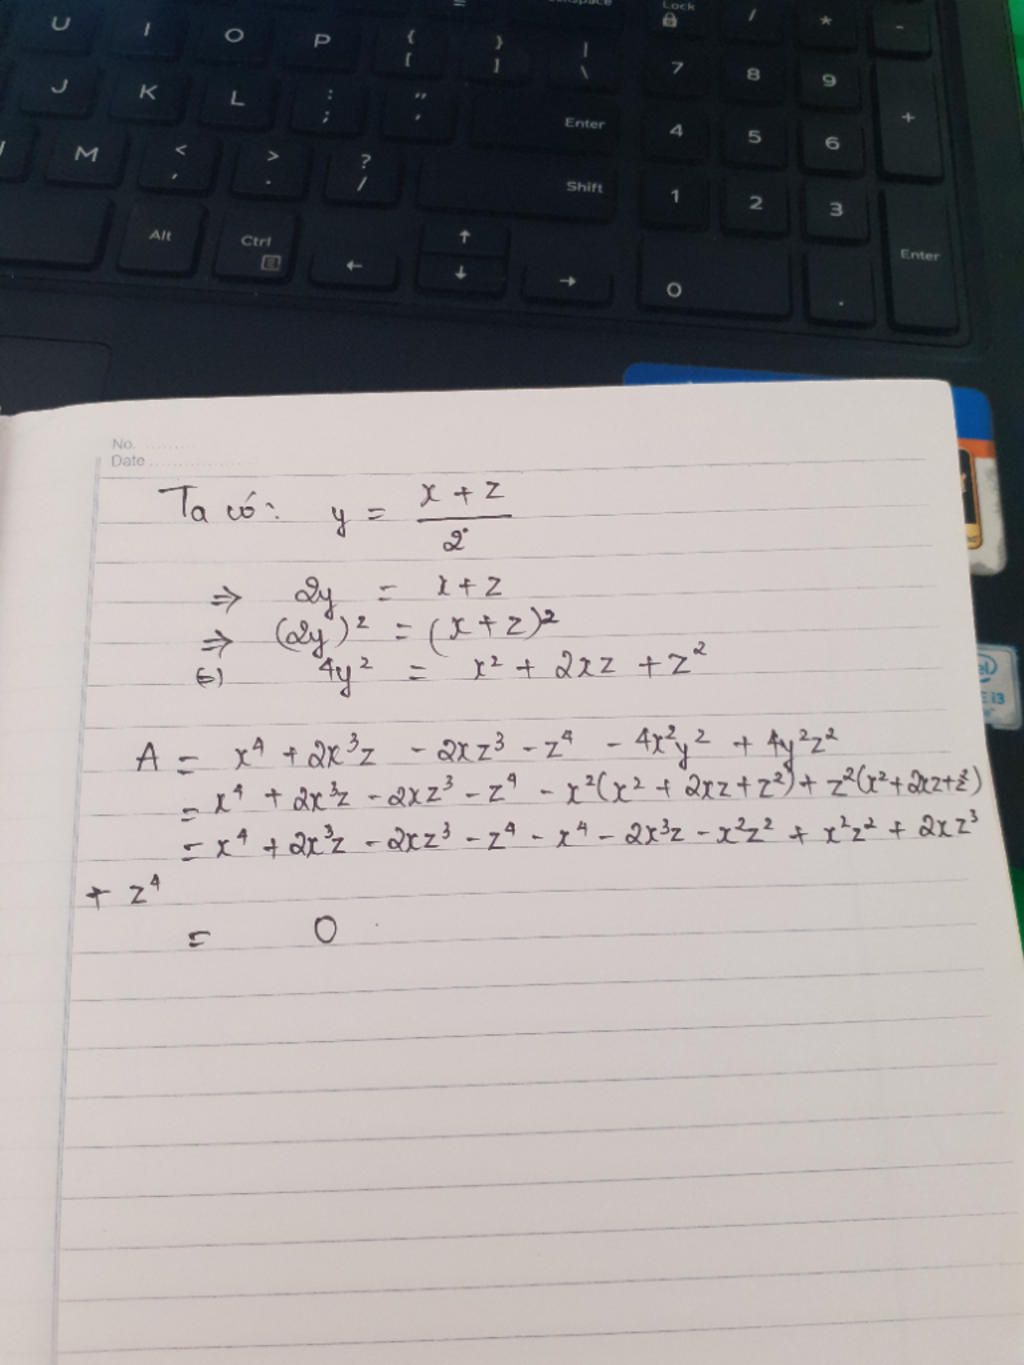 Lock
U I O P { [ } ] | \ 7 8 9 +
/ * -
J K L : ; " ' Enter 4 5 6
M < , > . ? / Shift 1 2 3
Alt Ctrl ← ↑ ↓ → 0 . Enter
No. ..........
Date ....................
Ta có: y = (x + z)/2
⇒ 2y = x + z
⇒ (2y)² = (x + z)²
(=) 4y² = x² + 2xz + z²
A = x⁴ + 2x³z - 2xz³ - z⁴ - 4x²y² + 4y²z²
= x⁴ + 2x³z - 2xz³ - z⁴ - x²(x² + 2xz + z²) + z²(x² + 2xz + z²)
= x⁴ + 2x³z - 2xz³ - z⁴ - x⁴ - 2x³z - x²z² + x²z² + 2xz³
+ z⁴
= 0
i3